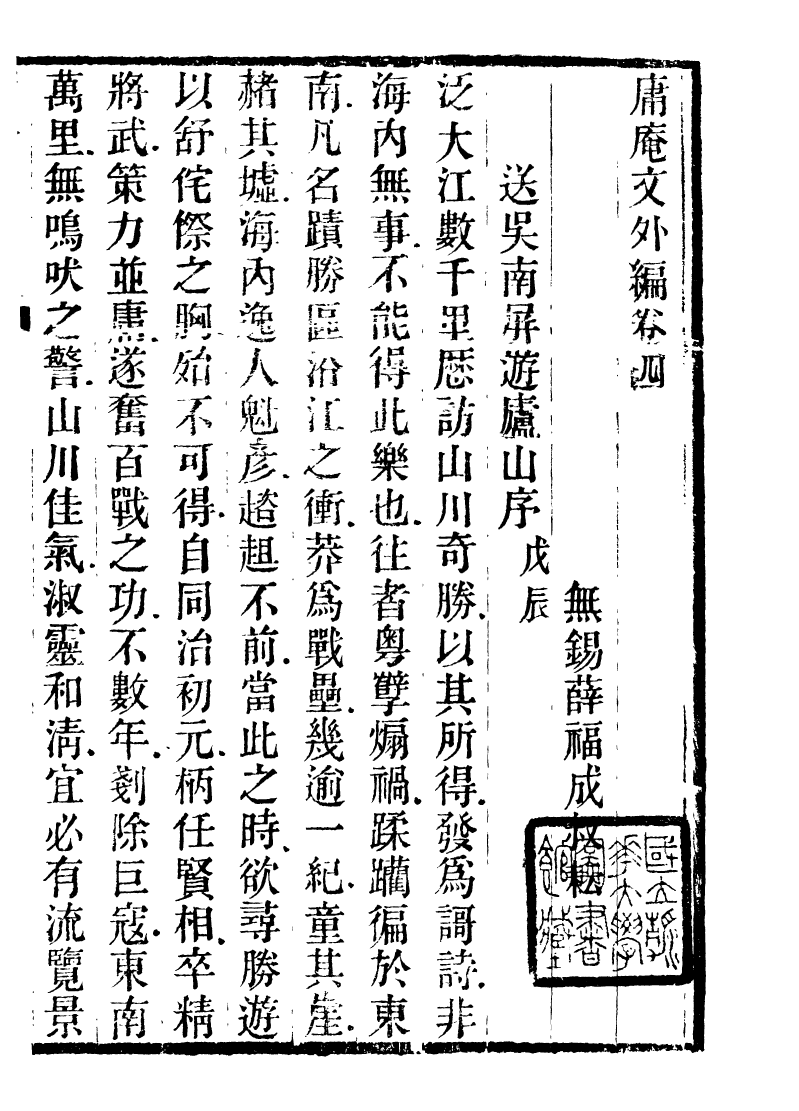 庸庵文外編卷四
無錫薛福成叔耘
送吳南屏遊廬山序戊辰
泛大江數千里歷訪山川奇勝以其所得發爲謌詩非
海內無事不能得此樂也往者粵孽煽禍蹂躪徧於東
南凡名蹟勝區沿江之衝莽爲戰壘幾逾一紀童其崖
赭其墟海內逸人魁彥趦趄不前當此之時欲尋勝遊
以舒侘傺之胸始不可得自同治初元柄任賢相卒精
將武策力並庸遂奮百戰之功不數年剗除巨寇東南
萬里無鳴吠之警山川佳氣淑靈和淸宜必有流覽景